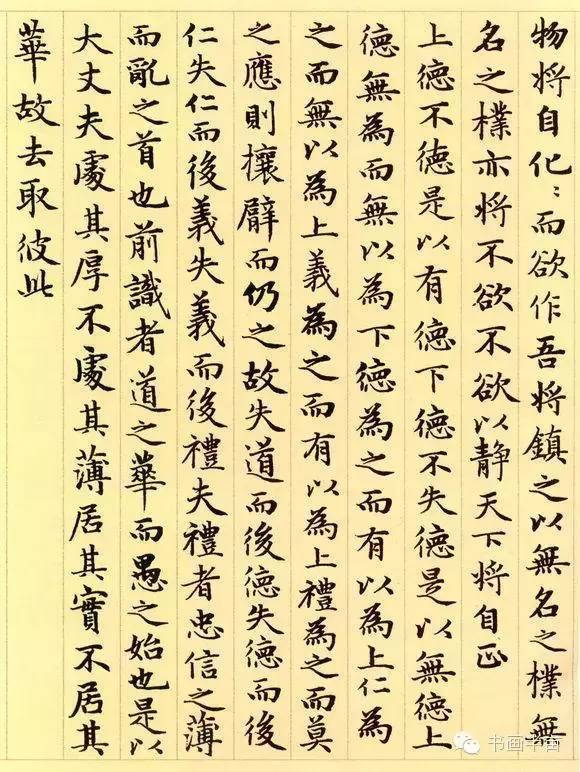 物将自化〻而欲作吾将鎮之以無名之樸無
名之樸亦将不欲不欲以静天下将自正
上德不德是以有德下德不失德是以無德上
德無為而無以為下德為之而有以為上仁為
之而無以為上義為之而有以為上禮為之而莫
之應則攘臂而仍之故失道而後德失德而後
仁失仁而後義失義而後禮夫禮者忠信之薄
而亂之首也前識者道之華而愚之始也是以
大丈夫處其厚不處其薄居其實不居其
華故去取彼此
书画半亩